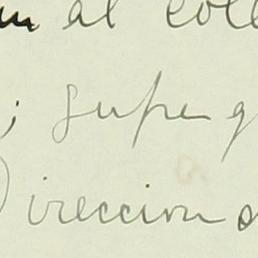 al cole
; supe q
Direccion d